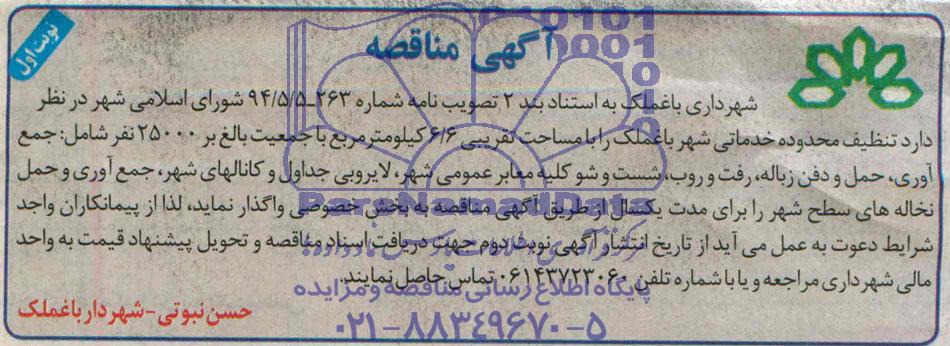 نوبت اول
آگهی مناقصه
شهرداری باغملک به استناد بند ۲ تصویب نامه شماره ۲۶۳ـ۹۴/۵/۵ شورای اسلامی شهر در نظر
دارد تنظیف محدوده خدماتی شهر باغملک را با مساحت تقریبی ۶/۶ کیلومتر مربع با جمعیت بالغ بر ۲۵۰۰۰ نفر شامل: جمع
آوری، حمل و دفن زباله، رفت و روب، شست و شو کلیه معابر عمومی شهر، لایروبی جداول و کانالهای شهر، جمع آوری و حمل
نخاله های سطح شهر را برای مدت یکسال از طریق آگهی مناقصه به بخش خصوصی واگذار نماید، لذا از پیمانکاران واجد
شرایط دعوت به عمل می آید از تاریخ انتشار آگهی نوبت دوم جهت دریافت اسناد مناقصه و تحویل پیشنهاد قیمت به واحد
مالی شهرداری مراجعه و یا با شماره تلفن ۰۶۱۴۳۷۲۳۰۶۰ تماس حاصل نمایند.
پایگاه اطلاع رسانی مناقصه و مزایده
حسن نبوتی-شهردار باغملک
۰۲۱-۸۸۳۴۹۶۷۰-۵